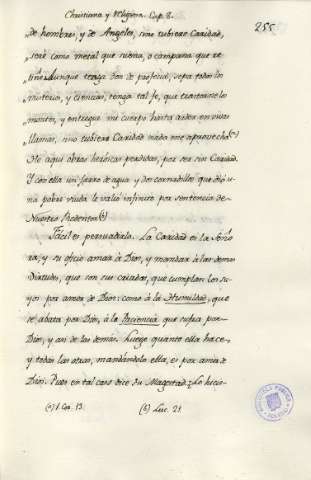 Christiana y Religiosa. Cap. 8.
255
de hombres, y de Angeles, sino tubiere Caridad,
seré como metal que suena, o campana que re
tiñe. Aunque tenga don de profecia, sepa todos los
misterios, y ciencias, tenga tal fe, que trastorne los
montes, y entregue mi cuerpo hasta arder en vivas
llamas, sino tubiere Caridad nada me aprovecha (a)
He aqui obras heroicas perdidas, por ser sin Caridad.
Y con ella un jarro de agua y dos cornadillos que dió u
na pobre viuda le valió infinito por sentencia de
Nuestro Redentor (b)
Facil es persuadirlo. La Caridad es la Seño
ra, y su oficio amár à Dios, y mandar à las demas
Virtudes, que son sus criadas, que cumplan los su
yos por amor de Dios: como à la Humildad, que
se abata por Dios, à la Paciencia que sufra por
Dios, y asi de las demás. Luego quanto ella hace
y todas las otras, mandándolo ella, es por amor de
Dios. Pues en tal caso dice su Magestad: Lo hecis-
(a) 1. Cor. 13.
(b) Luc. 21